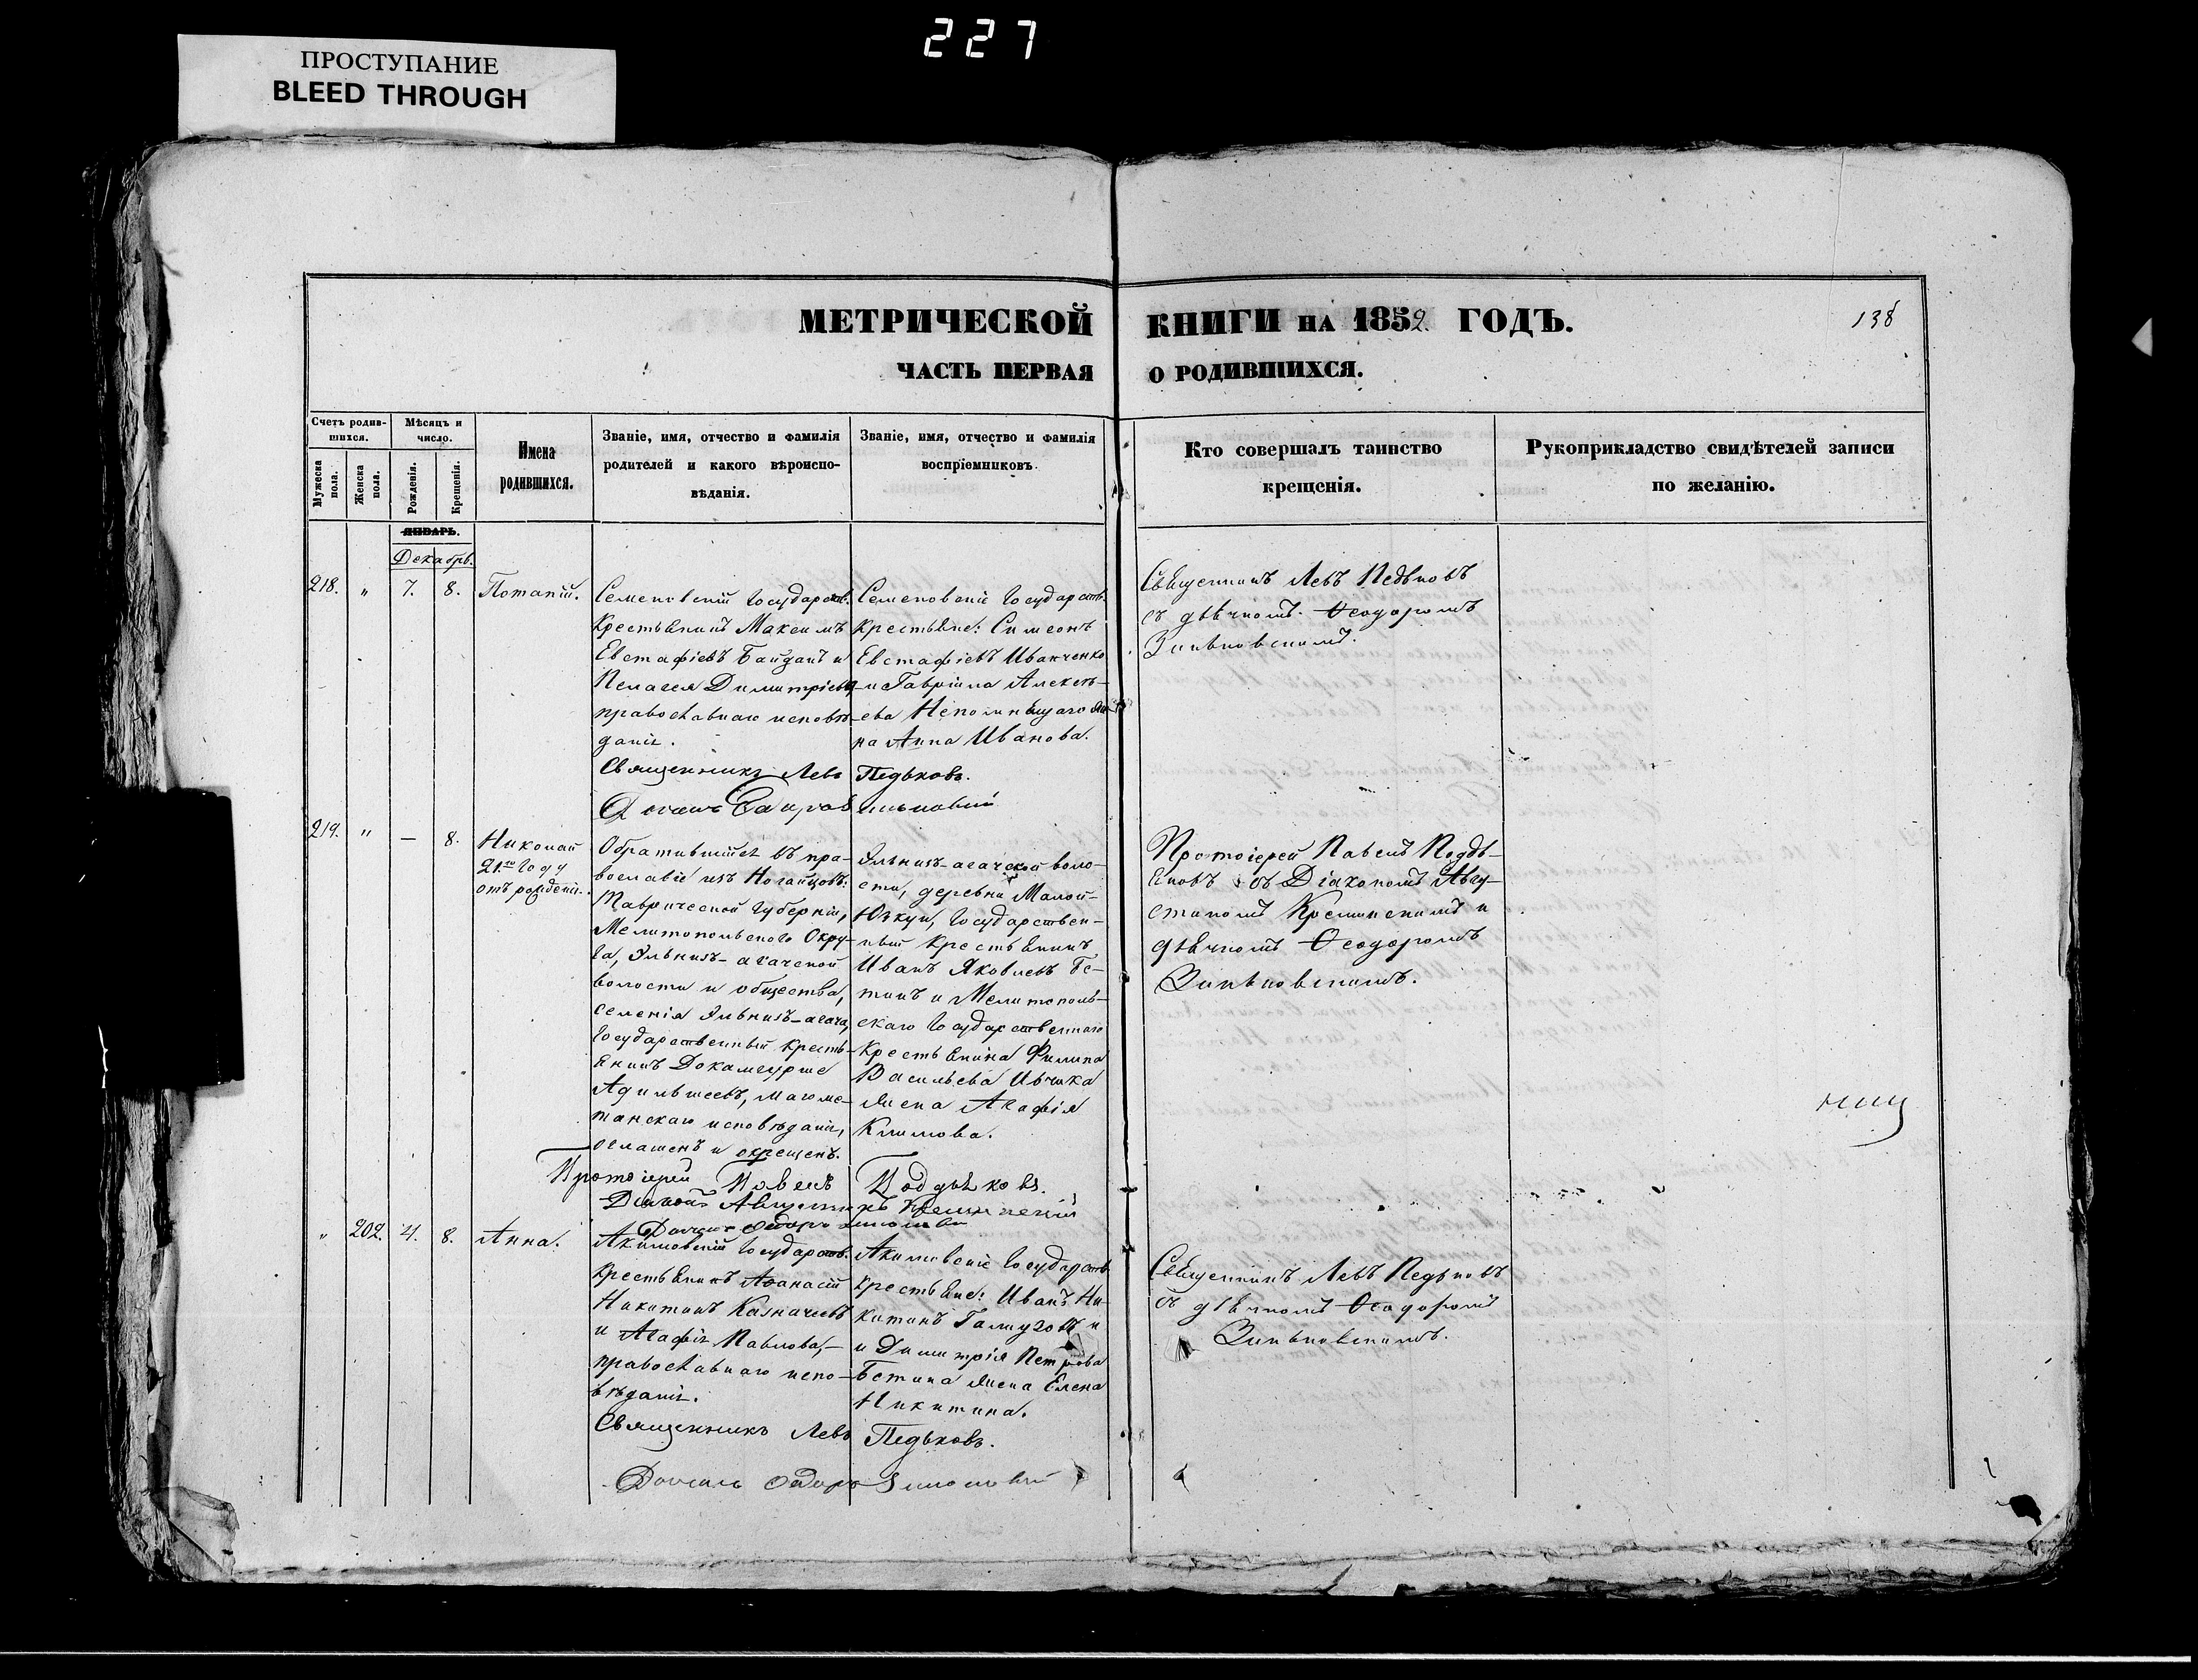 227
ПРОСТУПАНИЕ
BLEED THROUGH
МЕТРИЧЕСКОЙ КНИГИ НА 1852 ГОДЪ.
138
ЧАСТЬ ПЕРВАЯ О РОДИВШИХСЯ.
Счетъ родив-
шихся.
Мужеска пола.
Женска пола.
Мѣсяцъ и
число.
Рожденія.
Крещенія.
Имена
родившихся.
Званіе, имя, отчество и фамилія
родителей и какого вѣроиспо-
вѣданія.
Званіе, имя, отчество и фамилія
воспріемниковъ.
Кто совершалъ таинство
крещенія.
Рукоприкладство свидѣтелей записи
по желанію.
ЯНВАРЬ.
Декабрь.
218. " 7. 8. Потапій.
Семеновскій Государств.
Крестьянинъ Максимъ
Евстафіевъ Байданъ и
Пелагея Димитріева
православнаго исповѣ-
данія.
Семеновскіе Государств.
Крестьяне: Симеонъ
Евстафіевъ Иванченко
и Гавріила Алексѣ-
ева Непомнящаго же-
на Анна Иванова.
Священникъ Левъ Педьковъ.
Священникъ Левъ Педьковъ
съ дьячкомъ Ѳеодоромъ
Зиньковскимъ.
219. " — 8. Николай
21го году
отъ рожденія.
Обратившійся въ пра-
вославіе изъ Ногайцовъ:
Таврической Губерніи,
Мелитопольскаго Окру-
га, Яльнизъ-агачской
волости и общества,
селенія Яльнизъ-агача,
Государственный кресть-
янинъ Докамбурше
Адильшеевъ, магоме-
танскаго исповѣданія,
оглашенъ и окрещенъ.
Яльнизъ-агачской воло-
сти, деревни Малой-
Юзкуи, Государствен-
ный крестьянинъ
Иванъ Яковлевъ Бе-
тинъ и Мелитополь-
скаго Государственнаго
Крестьянина Филипа
Васильева Ивчика
жена Агафія
Климова.
Протоіерей Павелъ Поддьяковъ.
Протоіерей Павелъ Поддь-
яковъ съ Діакономъ Авгу-
стиномъ Креминскимъ и
дьячкомъ Ѳеодоромъ
Зиньковскимъ.
" 202. 4. 8. Анна.
Акимовскій Государств.
крестьянинъ Аѳанасій
Никитинъ Казначеевъ
и Агафія Павлова,
православнаго испо-
вѣданія.
Акимовскіе Государств.
крестьяне: Иванъ Ни-
китинъ Галмузовъ и
и Димитрія Петрова
Бетина жена Елена
Никитина.
Священникъ Левъ Педьковъ.
Священникъ Левъ Педьковъ
съ дьячкомъ Ѳеодоромъ
Зиньковскимъ.